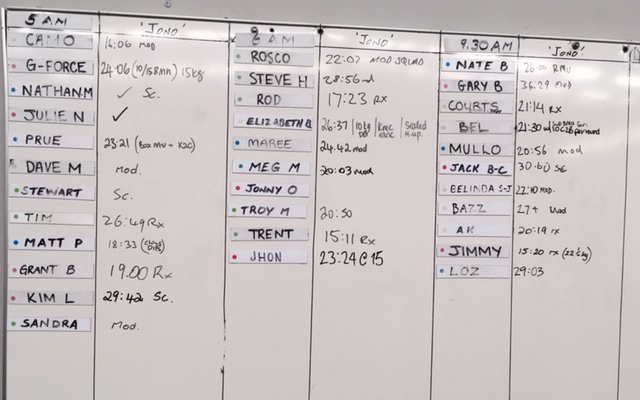 5 AM 'JONO'
CAMO 16:06 MOD
G-FORCE 24:06 (10/15kg) 15kg
NATHAN.M ✓ Sc.
JULIE N ✓
PRUE 23:21 (Box MU + K2C)
DAVE M Mod.
STEWART Sc.
TIM 26:49 Rx
MATT P 18:33
GRANT B 19.00 Rx
KIM L 29:42 Sc.
SANDRA Mod.
6 AM 'JONO'
ROSCO 22:07 MOD SQUAD
STEVE H 28:56
ROD 17:23 RX
ELIZABETH B 26:37 10kg DB Knee Scaled
MAREE 24.42 mod
MEG M 20:03 mod
JONNY O
TROY M 20:50
TRENT 15:11 Rx
JHON 23:24 @ 15
9.30 AM 'JONO'
NATE B 26:00 RMU
GARY B 36:29 MOD
COURTS 21:14 RX
BEL 21:30
MULLO 20:56 mod
JACK B-C 30:60 Sc
BELINDA S-J 22:10 MOD.
BAZZ 27+ Mod
AK 20:19 rx
JIMMY 15:20 rx (22½kg)
LOZ 29:03